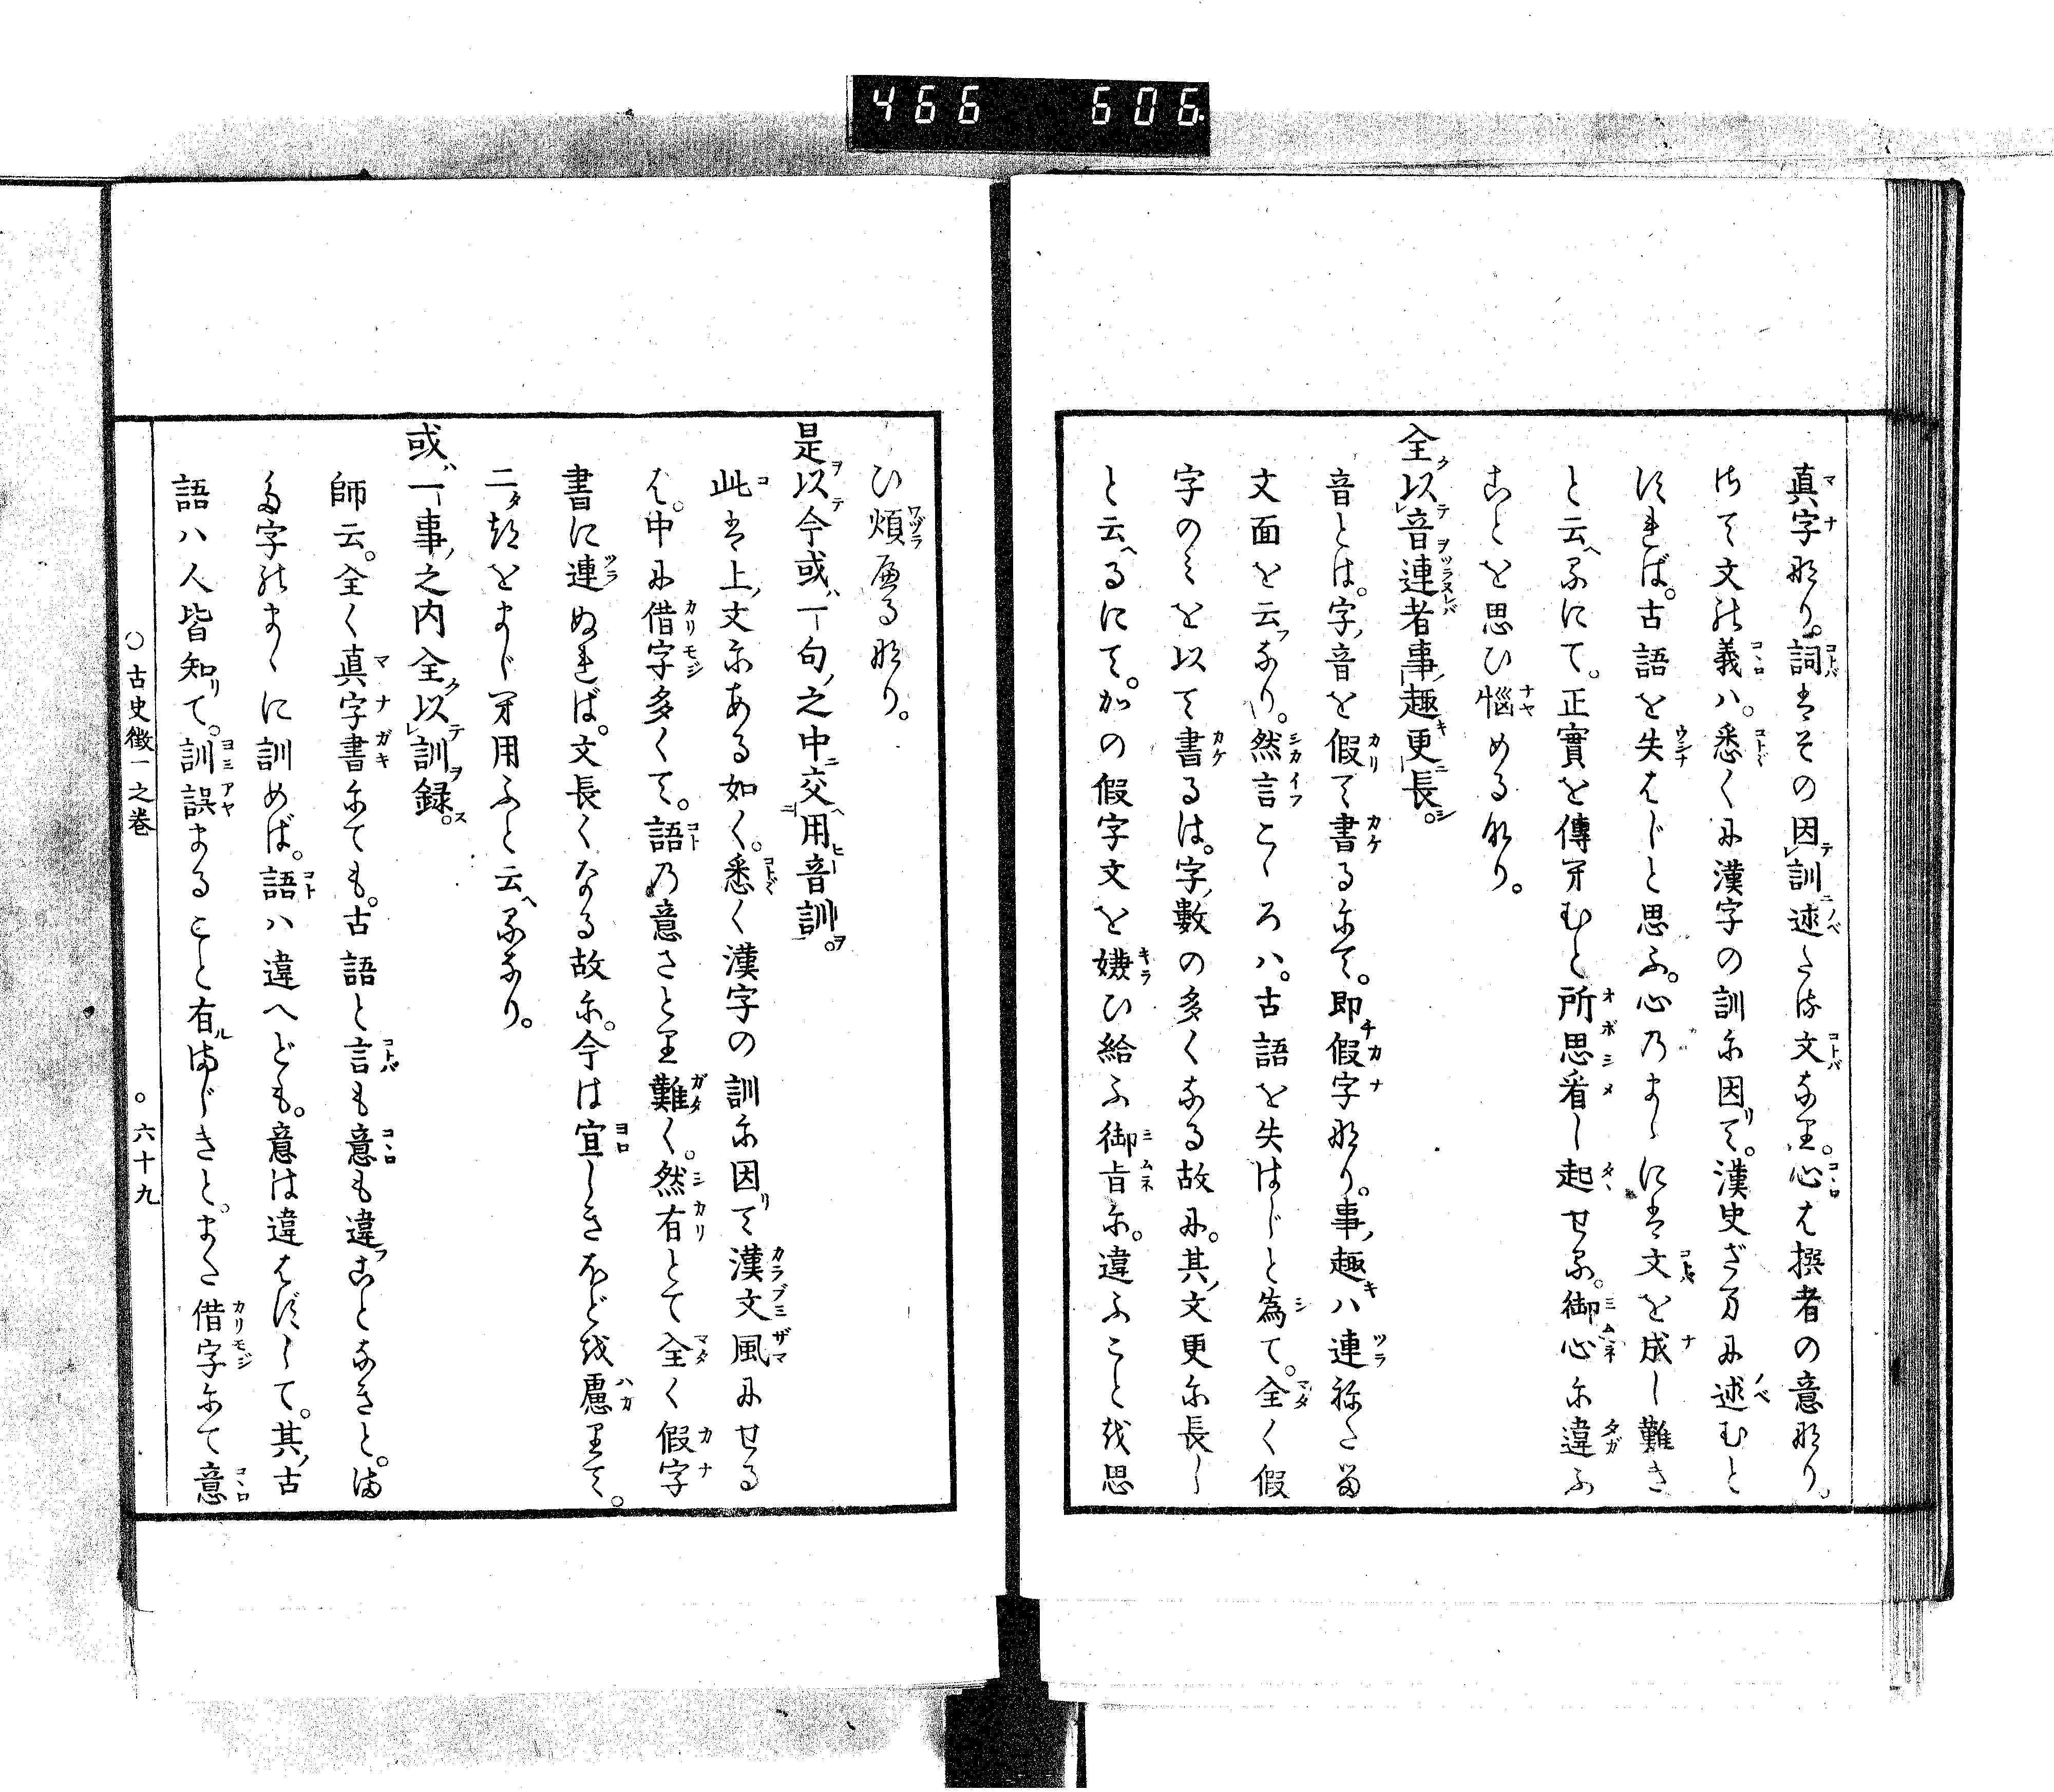 466 606
真字なり。詞はその因訓述たる文なり。心は撰者の意なり。
さて文の義ハ。悉くに漢字の訓に因て。漢史ざまに述むと
すれば。古語を失はじと思ふ。心のまゝには文を成し難き
と云へるにて。正實を傳えむと所思看し起せる。御心に違ふ
ことを思ひ惱める也り。
全以音連者事趣更長。
音とは。字ノ音を假て書るにて。即假字なり。事ノ趣ハ連ねたる
文面を云ふなり。然言こゝろハ。古語を失はじと為て。全く假
字のみを以て書るは。字ノ數の多くなる故に。其ノ文更に長し
と云へるにて。かの假字文を嫌ひ給ふ御旨に。違ふことを思
ひ煩へるなり。
是以今或一句之中交用音訓。
此は上ノ文にある如く。悉く漢字の訓に因て漢文風にせる
は。中に借字多くて。語の意さとり難く。然有とて全く假字
書に連ぬれば。文長くなる故に。今は宜しきほどを慮りて。
二タ方をまじえ用ふと云へるなり。
或一事之内全以訓録。
師云。全く真字書にても。古語と言も意も違ふことなきと。ま
た字のまゝに訓めば。語ハ違へども。意は違はずして。其ノ古
語ハ人皆知りて。訓誤まること有るまじきと。また借字にて意
○古史徴一之巻
○六十九